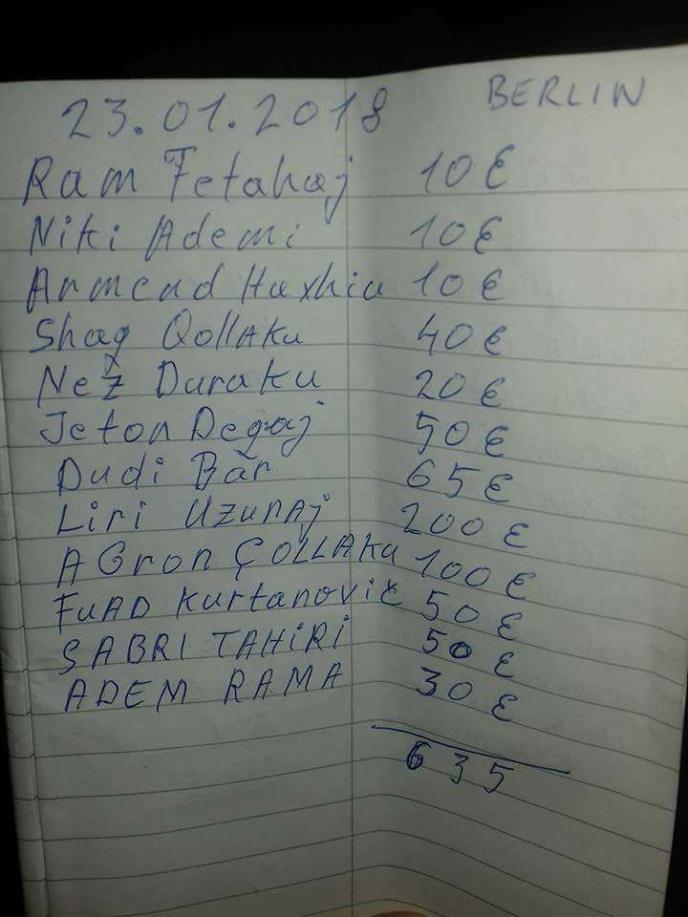 23.01.2018 BERLIN
Ram Fetahaj 10 €
Niki Ademi 10 €
Armend Haxhiu 10 €
Shaq Qollaku 40 €
Než Duraku 20 €
Jeton Degaj 50 €
Dudi Bar 65 €
Liri Uzunaj 200 €
AGron ÇOLLAKU 100 €
FuAD Kurtanović 50 €
SABRI TAHIRI 50 €
ADEM RAMA 30 €
635